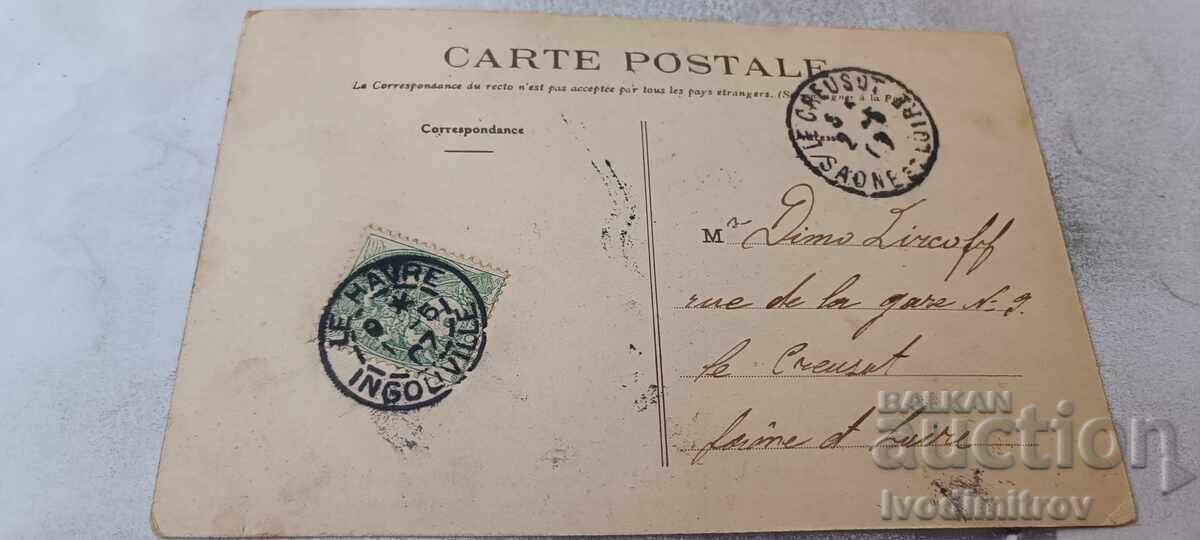 CARTE POSTALE
La Correspondance du recto n'est pas acceptée par tous les pays étrangers. (Se renseigner à la Poste)
Correspondance
LE CREUSOT
SAONE-ET-LOIRE
LE HAVRE
INGOUVILLE
Mr Dimo Zircoff
rue de la gare N- 9.
le Creusot
Saône et Loire
BALKAN
auction
Ivodimitrov